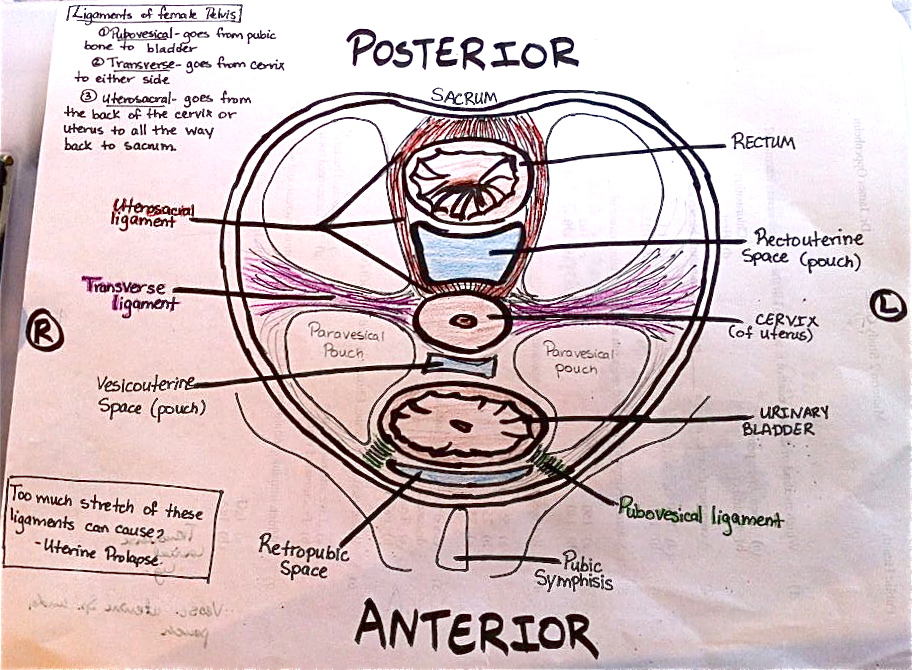 Ligaments of female Pelvis
① Pubovesical - goes from pubic
bone to bladder
② Transverse - goes from cervix
to either side
③ Uterosacral - goes from
the back of the cervix or
uterus to all the way
back to sacrum.
POSTERIOR
SACRUM
RECTUM
Uterosacral
ligament
Rectouterine
Space (pouch)
Transverse
ligament
L
R
CERVIX
(of uterus)
Paravesical
Pouch
Paravesical
pouch
Vesicouterine
Space (pouch)
URINARY
BLADDER
Too much stretch of these
ligaments can cause?
- Uterine Prolapse.
Pubovesical ligament
Retropubic
Space
Pubic
Symphisis
ANTERIOR